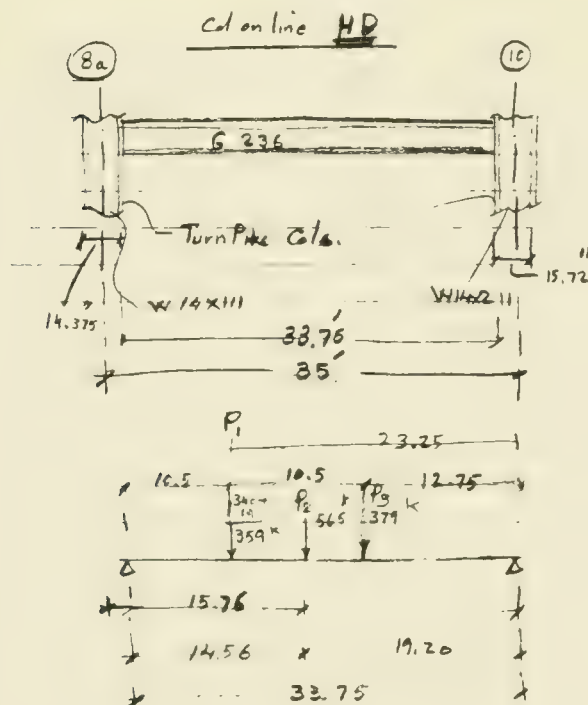 Col on line HD
8a
10
G 236
Turn Pike Cols.
14.375"
W 14x111
W14x211
15.72"
33.75'
35'
P1
23.25
10.5
10.5
12.75
340+
19
359 K
P2
565 K
P3
379 K
15.76
14.56
19.20
33.75